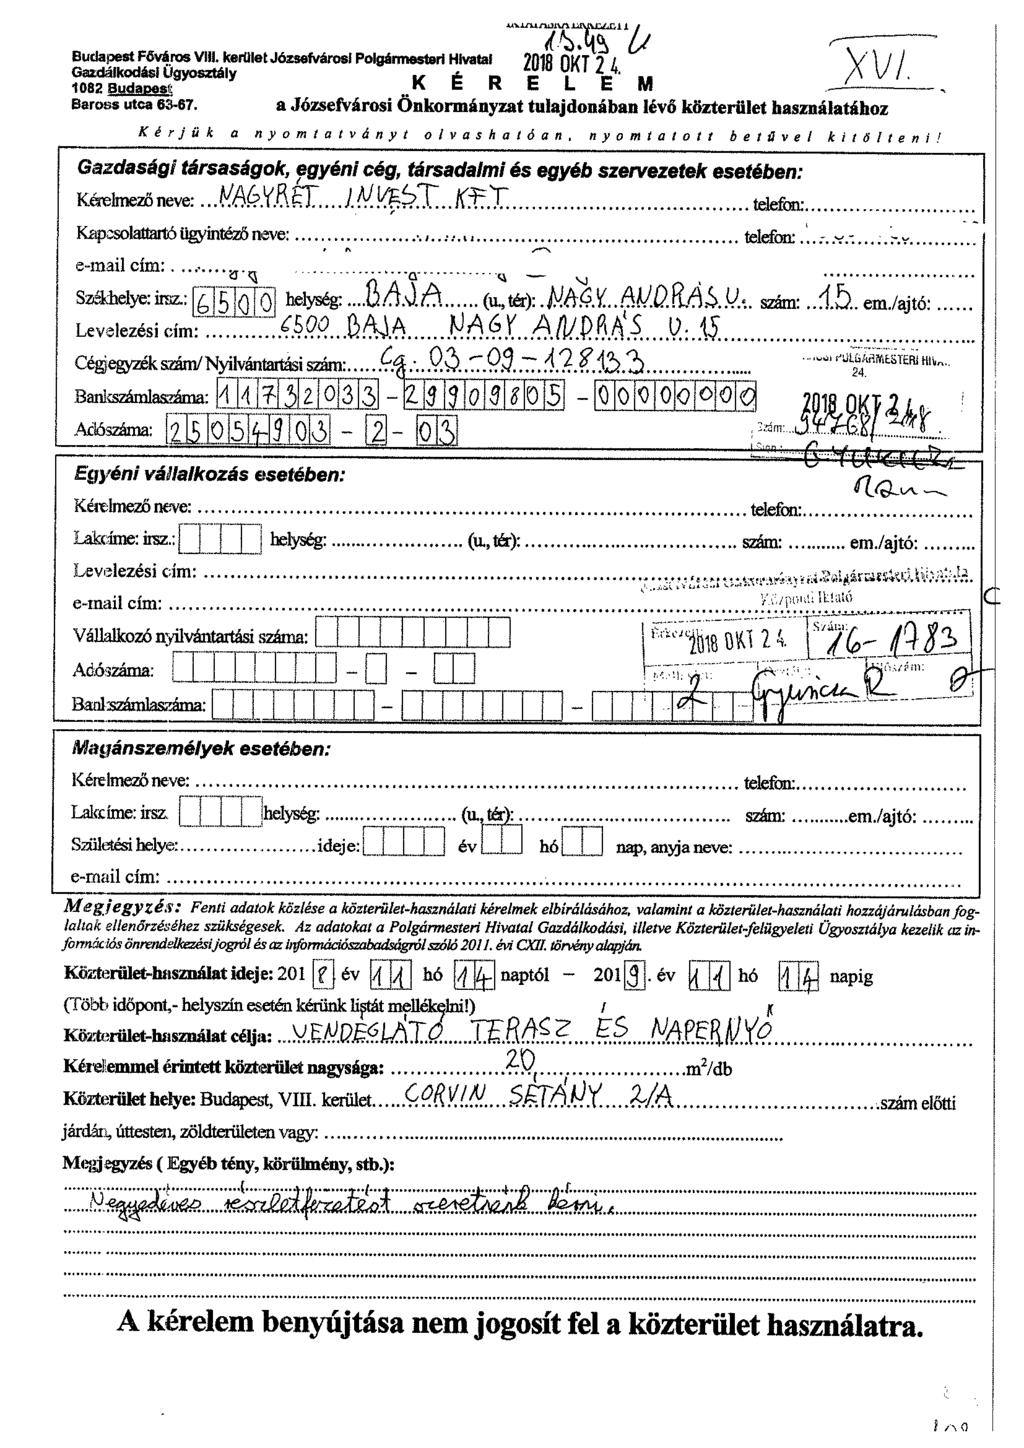 15.49
Budapest Főváros VIII. kerület Józsefvárosi Polgármesteri Hivatal
2018 OKT 24.
XVI.
Gazdálkodási Ügyosztály
1082 Budapest
KÉRELEM
Baross utca 63-67.
a Józsefvárosi Önkormányzat tulajdonában lévő közterület használatához
Kérjük a nyomtatványt olvashatóan, nyomtatott betűvel kitölteni!
Gazdasági társaságok, egyéni cég, társadalmi és egyéb szervezetek esetében:
Kérelmező neve: NAGYRÉT INVEST KFT telefon:
Kapcsolattartó ügyintéző neve: telefon:
e-mail cím:
Székhelye: irsz.: 6500 helység: BAJA (u., tér): NAGY ANDRÁS U. szám: 15. em./ajtó:
Levelezési cím: 6500 BAJA NAGY ANDRÁS U. 15
Cégjegyzék szám/ Nyilvántartási szám: Cg. 03-09-128133
POLGÁRMESTERI HIV
24.
Bankszámlaszáma: 11732033 - 29909805 - 00000000
2018 OKT 24.
Adószáma: 25054903 - 2 - 03
Egyéni vállalkozás esetében:
Kérelmező neve: telefon:
Lakcíme: irsz.: helység: (u., tér): szám: em./ajtó:
Levelezési cím:
e-mail cím:
Központi Iktató
Vállalkozó nyilvántartási száma:
Érkezett: 2018 OKT 24. Szám: 16-1783
Adószáma:
Mell.: 2
Előszám:
Bankszámlaszáma:
Magánszemélyek esetében:
Kérelmező neve: telefon:
Lakcíme: irsz. helység: (u., tér): szám: em./ajtó:
Születési helye: ideje: év hó nap, anyja neve:
e-mail cím:
Megjegyzés: Fenti adatok közlése a közterület-használati kérelmek elbírálásához, valamint a közterület-használati hozzájárulásban fog-
laltak ellenőrzéséhez szükségesek. Az adatokat a Polgármesteri Hivatal Gazdálkodási, illetve Közterület-felügyeleti Ügyosztálya kezelik az in-
formációs önrendelkezési jogról és az információszabadságról szóló 2011. évi CXII. törvény alapján.
Közterület-használat ideje: 2018 év 11 hó 14 naptól – 2019. év 11 hó 14 napig
(Több időpont,- helyszín esetén kérünk listát mellékelni!)
Közterület-használat célja: VENDÉGLÁTÓ TERASZ ÉS NAPERNYŐ
Kérelemmel érintett közterület nagysága: 20 m²/db
Közterület helye: Budapest, VIII. kerület CORVIN SÉTÁNY 2/A szám előtti
járdán, úttesten, zöldterületen vagy:
Megjegyzés ( Egyéb tény, körülmény, stb.):
Negyedéves részletfizetést szeretnénk kérni.
A kérelem benyújtása nem jogosít fel a közterület használatra.